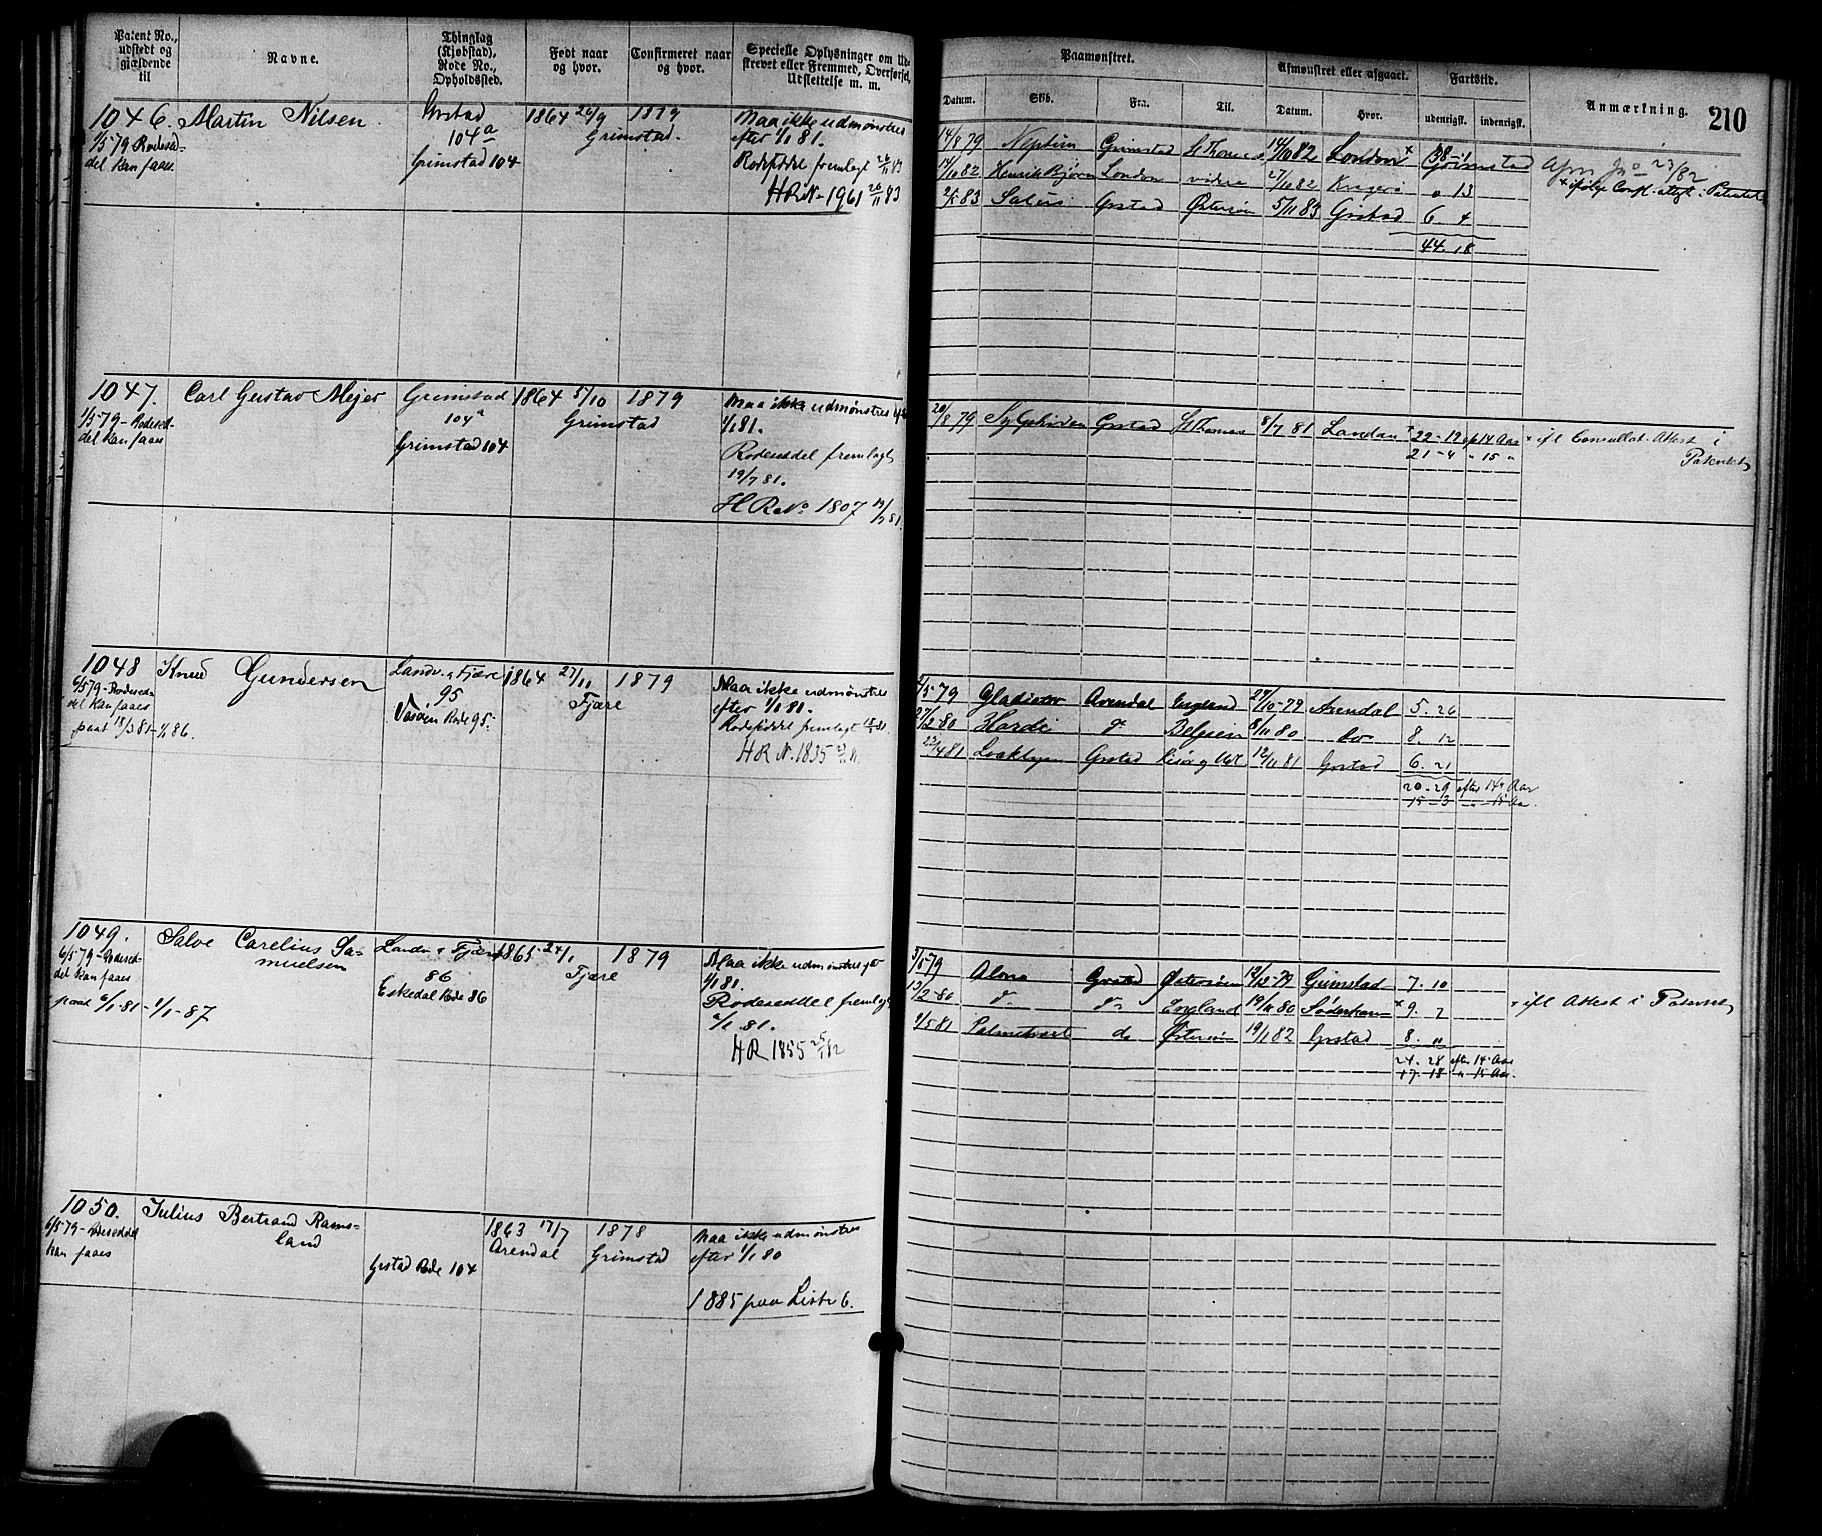 Patent No., udstedt og gjældende til
Navne.
Thinglag (Kjøbstad), Rode No., Opholdssted.
Født naar og hvor.
Confirmeret naar og hvor.
Specielle Oplysninger om Udskrevet eller Fremmed, Overførsel, Udslettelse m. m.
Paamønstret.
Datum. Skib. Fra. Til.
Afmønstret eller afgaaet.
Datum. Hvor.
Fartstid.
udenrigsk. indenrigsk.
Anmærkning.
210
1046. Martin Nilsen Grstad 1864 26/9 1879 Maa ikke udmønstres
1/5 79 Rodesed- 104a Grimstad. efter 1/1 81.
del kan faaes. Grimstad 104 Rodeseddel fremlagt 26/11 83
HR No 1961 26/11 83
14/8 79 Neptun Grimstad St Thomas 14/10 82 London x 38-1 Grimstad
14/10 82 Henrik Bjørn London vidre 27/10 82 Kragerø " 13
2/5 83 Grstad Østersøen 5/11 83 Grstad 6. 4
44. 18
1047. Carl Gustav Mejer Grimstad 1864 5/10 1879 Maa ikke udmønstres efter
1/5 79-Rodesed- 104a Grimstad 1/1 81.
del kan faaes Grimstad 104 Rodeseddel fremlagt
19/7 81.
H R No 1807 19/7 81.
20/8 79 Sylphiden Grstad St Thomas 8/7 81 London x 22-19 ep 14 Aar x ifl Consulat-Attest i
21-4 " 15 " Patentet
1048 Knud Gundersen Landv. & Fjære 1864 27/11 1879 Maa ikke udmønstres
6/5 79-Rodesed- 95 Fjære efter 1/1 81.
del kan faaes Vesøen Rode 95. Rodeseddel fremlagt 18/3 81.
paat 18/3 81-1/1 86. HR N. 1835
2/5 79 Gladiator Arendal England 27/10-79 Arendal 5. 26
27/2-80 Hardi do Belgien 8/11 80 do 8. 12
22/4 81 Grstad 12/11 81 Grstad 6. 21
20-29 efter 14 Aar
15-3 " 15 Aar.
1049. Salve Carelius Sa- Landv & Fjære 1865 24/1 1879 Maa ikke udmønstres efter
6/5 79-Rodesed- muelsen 86 Fjære 1/1 81.
del kan faaes Eskedal Rode 86 Rodeseddel fremlagt
paat 6/1-81-1/1-87 6/1 81.
HR 1855 25/1 82
3/5 79 Alma Grstad Østersøen 12/12-79 Grimstad 7. 10
13/2-80 do do England 19/11 80 Søderhamn x 9. 7 x ifl Attest i Patentet
9/5 81 do Østersøen 19/1 82 Grstad 8. 11
24. 28 efter 14 Aar
17. 18 " 15 Aar.
1050. Julius Bertrand Rams- 1863 17/7 1878 Maa ikke udmønstres
6/5 79-Rodeseddel land Arendal Grimstad efter 1/1 80
kan faaes Grstad Rode 104
1885 paa Liste 6.